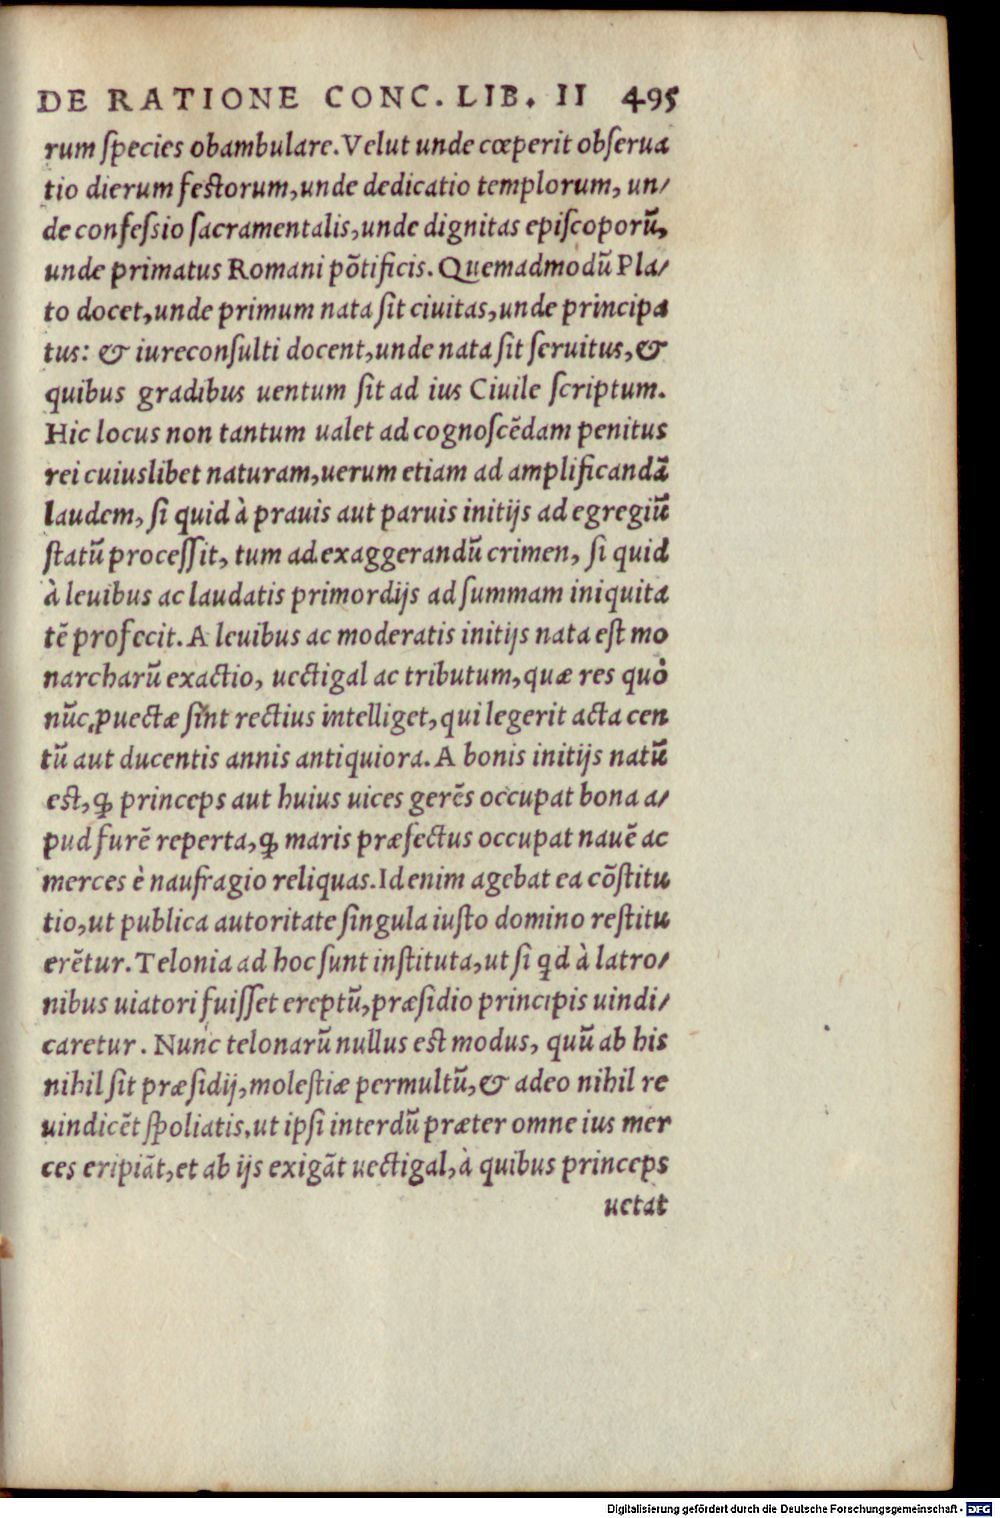 DE RATIONE CONC. LIB. II 495
rum ſpecies obambulare. Velut unde cœperit obſerua
tio dierum feſtorum, unde dedicatio templorum, un/
de confeſsio ſacramentalis, unde dignitas epiſcoporũ,
unde primatus Romani põtificis. Quemadmodũ Pla/
to docet, unde primum nata ſit ciuitas, unde principa
tus: & iureconſulti docent, unde nata ſit ſeruitus, &
quibus gradibus uentum ſit ad ius Ciuile ſcriptum.
Hic locus non tantum ualet ad cognoſcẽdam penitus
rei cuiuslibet naturam, uerum etiam ad amplificandã
laudem, ſi quid à prauis aut paruis initijs ad egregiũ
ſtatũ proceſſit, tum ad exaggerandũ crimen, ſi quid
à leuibus ac laudatis primordijs ad ſummam iniquita
tẽ profecit. A leuibus ac moderatis initijs nata eſt mo
narcharũ exactio, uectigal ac tributum, quæ res quò
nũc ꝓuectæ ſint rectius intelliget, qui legerit acta cen
tũ aut ducentis annis antiquiora. A bonis initijs natũ
eſt, ꝙ princeps aut huius uices gerẽs occupat bona a/
pud furẽ reperta, ꝙ maris præfectus occupat nauẽ ac
merces è naufragio reliquas. Id enim agebat ea cõſtitu
tio, ut publica autoritate ſingula iuſto domino reſtitu
erẽtur. Telonia ad hoc ſunt inſtituta, ut ſi qd à latro/
nibus uiatori fuiſſet ereptũ, præſidio principis uindi/
caretur. Nunc telonarũ nullus eſt modus, quũ ab his
nihil ſit præſidij, moleſtiæ permultũ, & adeo nihil re
uindicẽt ſpoliatis, ut ipſi interdũ præter omne ius mer
ces eripiãt, et ab ijs exigãt uectigal, à quibus princeps
uetat
Digitalisierung gefördert durch die Deutsche Forschungsgemeinschaft - DFG